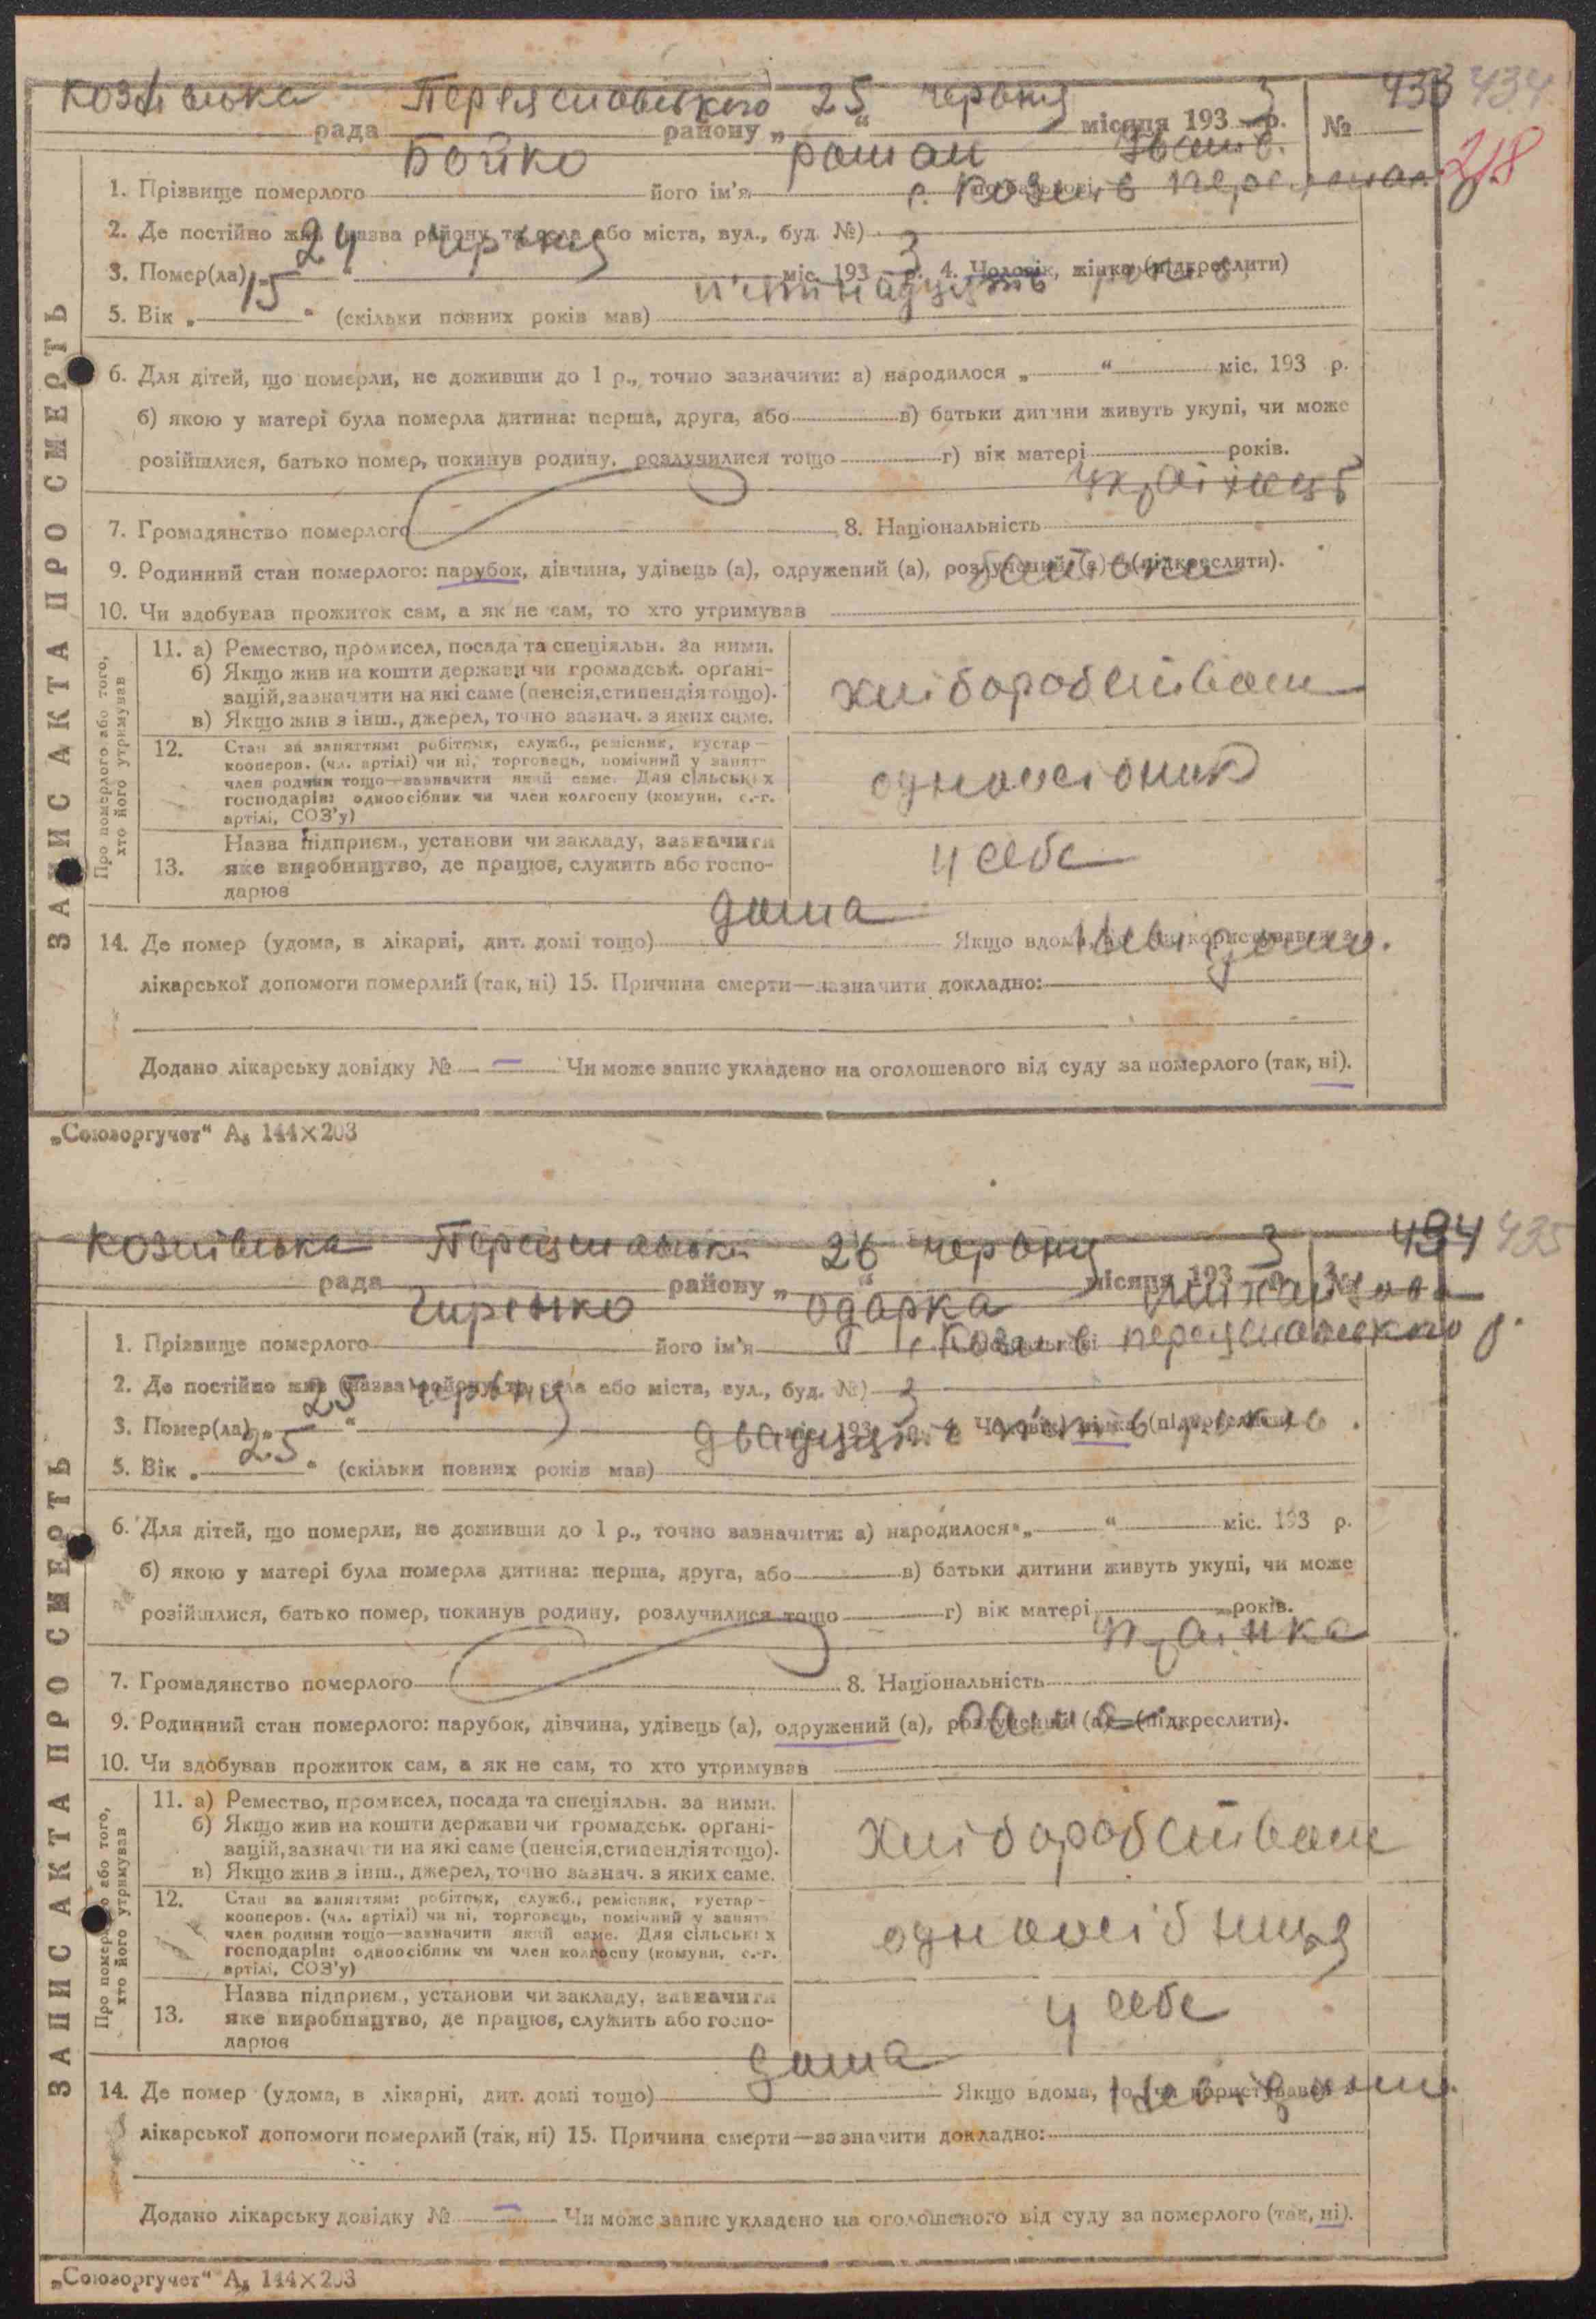 Козлівська рада Переяславського району „25“ червня місяця 1933 р. № 433 434
218
1. Прізвище померлого Бойко його ім'я Роман по батькові Іванов.
2. Де постійно жив (назва району та села або міста, вул., буд. №) с. Козлів
3. Помер(ла) „24“ червня міс. 1933 р. 4. Чоловік, жінка (підкреслити)
5. Вік „15“ (скільки повних років мав) п'ятнадцять років
6. Для дітей, що померли, не доживши до 1 р., точно зазначити: а) народилося „ “ міс. 193 р.
б) якою у матері була померла дитина: перша, друга, або в) батьки дитини живуть укупі, чи може
розійшлися, батько помер, покинув родину, розлучилися тощо г) вік матері років.
7. Громадянство померлого 8. Національність Українець
9. Родинний стан померлого: парубок, дівчина, удівець (а), одружений (а), розлучений (а) (підкреслити).
10. Чи здобував прожиток сам, а як не сам, то хто утримував батько
ЗАПИС АКТА ПРО СМЕРТЬ
Про померлого або того, хто його утримував
11. а) Ремество, промисел, посада та спеціяльн. за ними.
б) Якщо жив на кошти держави чи громадськ. органі-
зацій, зазначити на які саме (пенсія, стипендія тощо).
в) Якщо жив з інш., джерел, точно зазнач. з яких саме.
хліборобством
12. Стан за заняттям: робітник, служб., ремісник, кустар—
кооперов. (чл. артілі) чи ні, торговець, помічний у занятт
член родини тощо—зазначити який саме. Для сільських
господарів: одноосібник чи член колгоспу (комуни, с.-г.
артілі, СОЗ'у)
одноосібник
13. Назва підприєм., установи чи закладу, зазначити
яке виробництво, де працює, служить або госпо-
дарює
у себе
14. Де помер (удома, в лікарні, дит. домі тощо) дома Якщо вдома, то чи користувався з
лікарської допомоги померлий (так, ні) 15. Причина смерти—зазначити докладно: Невідомо.
Додано лікарську довідку № — Чи може запис укладено на оголошеного від суду за померлого (так, ні).
„Союзоргучет“ А₅ 144×203
Козлівська рада Переяславськ району „26“ червня місяця 1933 р. № 434 435
1. Прізвище померлого його ім'я Одарка по батькові
2. Де постійно жив (назва району та села або міста, вул., буд. №) с. Козлів Переяславського р.
3. Помер(ла) „25“ червня міс. 1933 р. 4. Чоловік, жінка (підкреслити)
5. Вік „25“ (скільки повних років мав) двадцять п'ять років.
6. Для дітей, що померли, не доживши до 1 р., точно зазначити: а) народилося „ “ міс. 193 р.
б) якою у матері була померла дитина: перша, друга, або в) батьки дитини живуть укупі, чи може
розійшлися, батько помер, покинув родину, розлучилися тощо г) вік матері років.
7. Громадянство померлого 8. Національність Українка
9. Родинний стан померлого: парубок, дівчина, удівець (а), одружений (а), розлучений (а) (підкреслити).
10. Чи здобував прожиток сам, а як не сам, то хто утримував сама
ЗАПИС АКТА ПРО СМЕРТЬ
Про померлого або того, хто його утримував
11. а) Ремество, промисел, посада та спеціяльн. за ними.
б) Якщо жив на кошти держави чи громадськ. органі-
зацій, зазначити на які саме (пенсія, стипендія тощо).
в) Якщо жив з інш., джерел, точно зазнач. з яких саме.
хліборобством
12. Стан за заняттям: робітник, служб., ремісник, кустар—
кооперов. (чл. артілі) чи ні, торговець, помічний у занятт
член родини тощо—зазначити який саме. Для сільських
господарів: одноосібник чи член колгоспу (комуни, с.-г.
артілі, СОЗ'у)
одноосібниця
13. Назва підприєм., установи чи закладу, зазначити
яке виробництво, де працює, служить або госпо-
дарює
у себе
14. Де помер (удома, в лікарні, дит. домі тощо) дома Якщо вдома, то чи користувався з
лікарської допомоги померлий (так, ні) 15. Причина смерти—зазначити докладно: Невідомо.
Додано лікарську довідку № — Чи може запис укладено на оголошеного від суду за померлого (так, ні).
„Союзоргучет“ А₅ 144×203